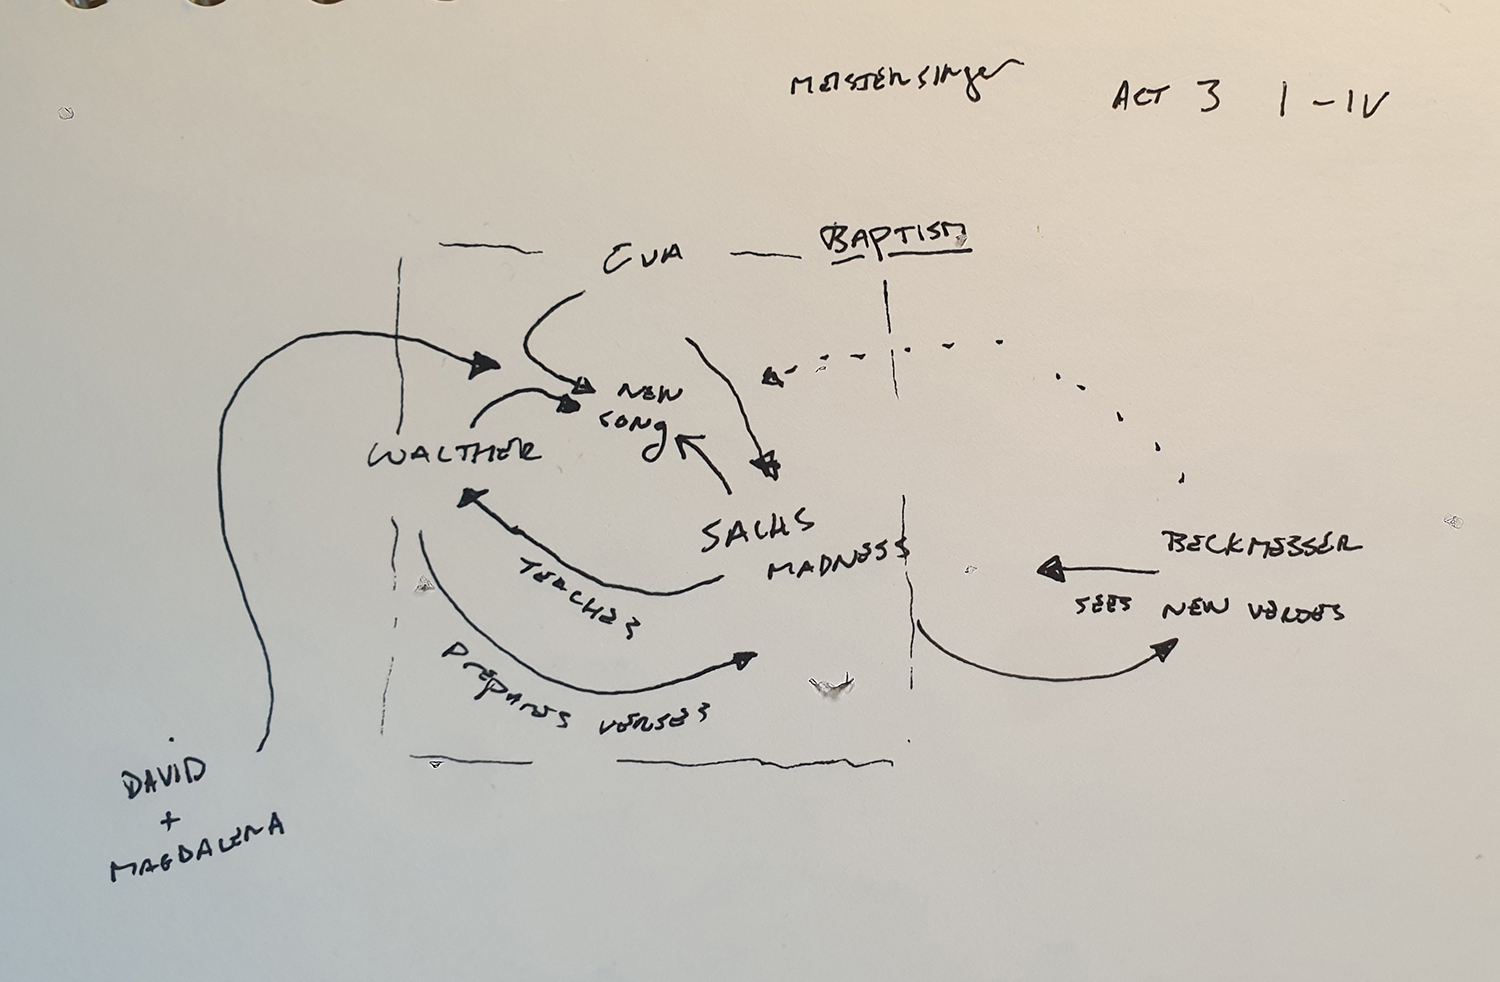 MEISTERSINGER
ACT 3 I-IV
EVA
BAPTISM
NEW
SONG
WALTHER
SACHS
MADNESS
TEACHES
PREPARES VERSES
BECKMESSER
SEES NEW VERSES
DAVID
+
MAGDALENA